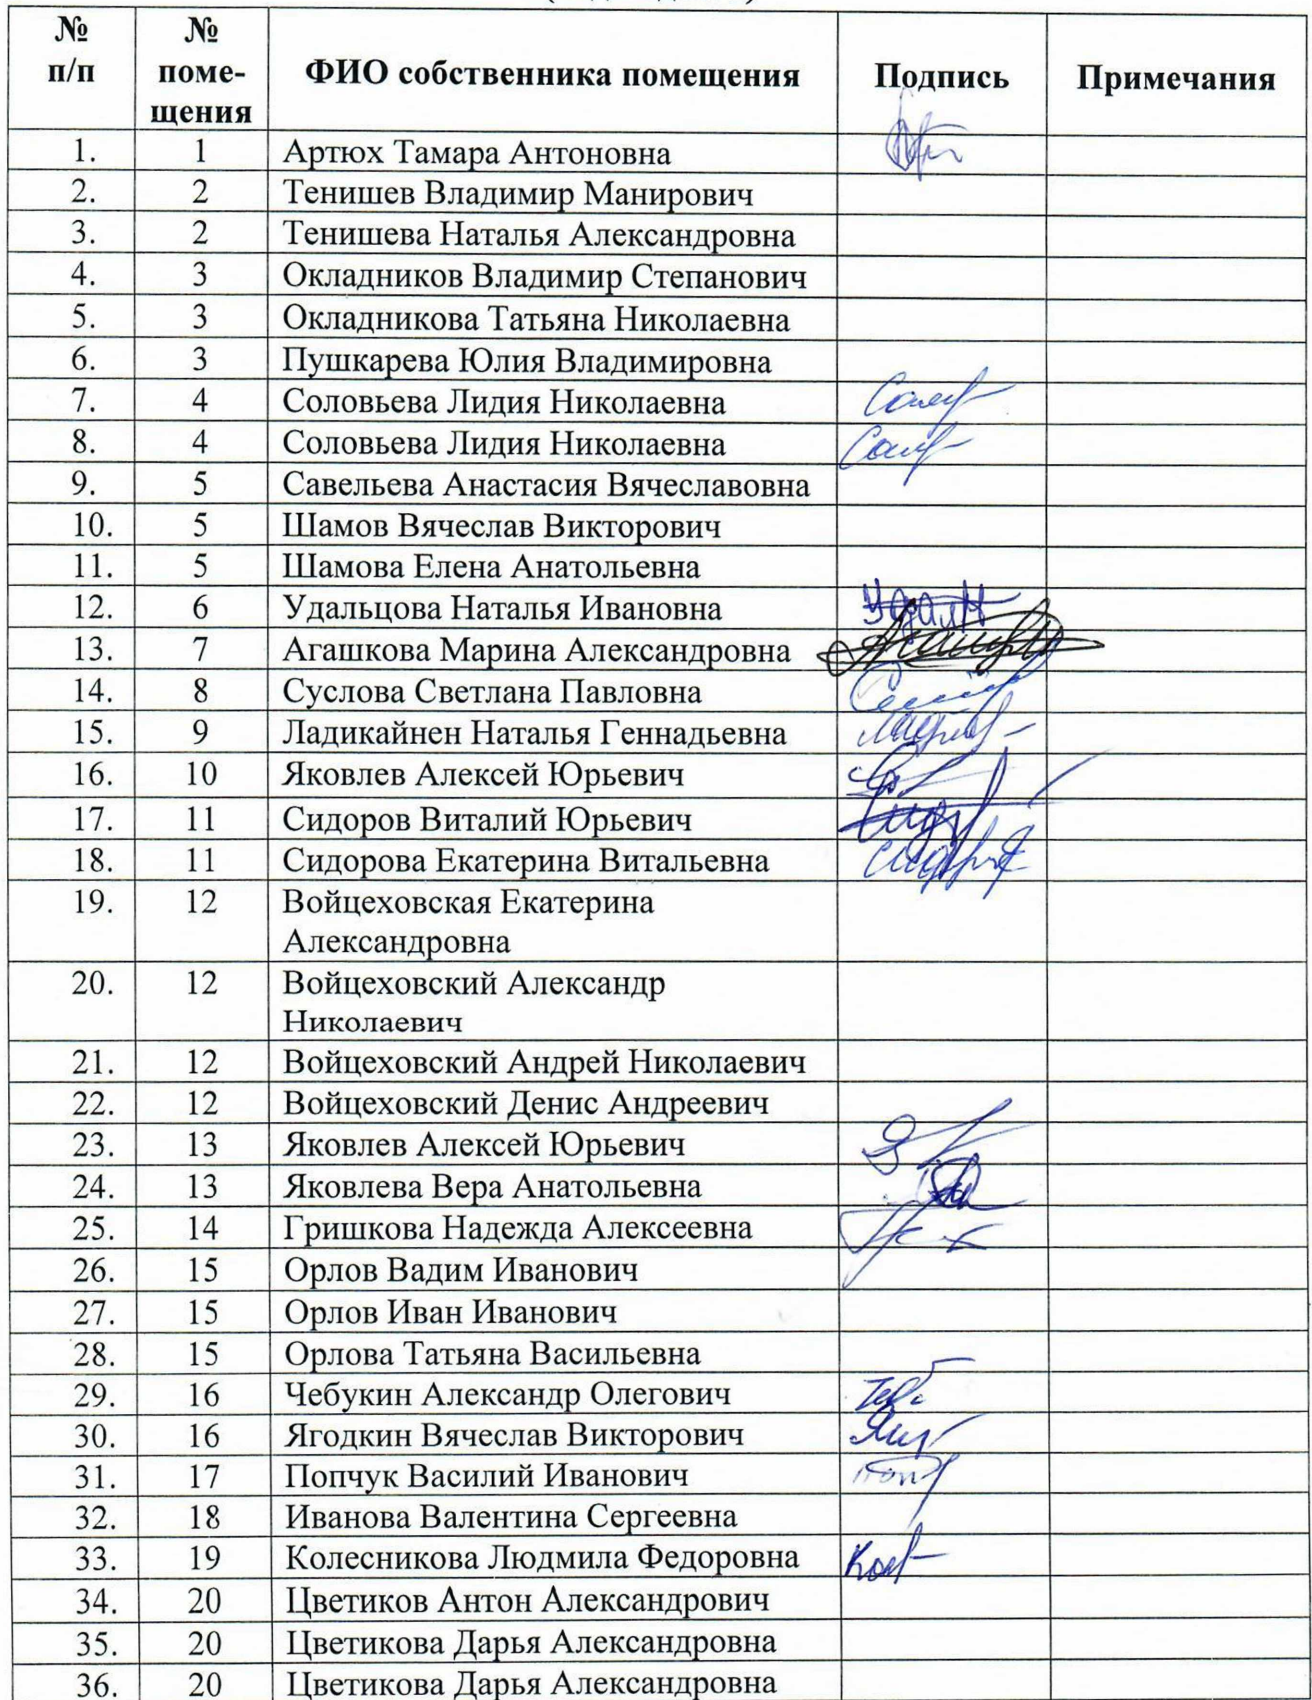 № п/п № поме-щения ФИО собственника помещения Подпись Примечания
1. 1 Артюх Тамара Антоновна
2. 2 Тенишев Владимир Манирович
3. 2 Тенишева Наталья Александровна
4. 3 Окладников Владимир Степанович
5. 3 Окладникова Татьяна Николаевна
6. 3 Пушкарева Юлия Владимировна
7. 4 Соловьева Лидия Николаевна
8. 4 Соловьева Лидия Николаевна
9. 5 Савельева Анастасия Вячеславовна
10. 5 Шамов Вячеслав Викторович
11. 5 Шамова Елена Анатольевна
12. 6 Удальцова Наталья Ивановна
13. 7 Агашкова Марина Александровна
14. 8 Суслова Светлана Павловна
15. 9 Ладикайнен Наталья Геннадьевна
16. 10 Яковлев Алексей Юрьевич
17. 11 Сидоров Виталий Юрьевич
18. 11 Сидорова Екатерина Витальевна
19. 12 Войцеховская Екатерина
Александровна
20. 12 Войцеховский Александр
Николаевич
21. 12 Войцеховский Андрей Николаевич
22. 12 Войцеховский Денис Андреевич
23. 13 Яковлев Алексей Юрьевич
24. 13 Яковлева Вера Анатольевна
25. 14 Гришкова Надежда Алексеевна
26. 15 Орлов Вадим Иванович
27. 15 Орлов Иван Иванович
28. 15 Орлова Татьяна Васильевна
29. 16 Чебукин Александр Олегович
30. 16 Ягодкин Вячеслав Викторович
31. 17 Попчук Василий Иванович
32. 18 Иванова Валентина Сергеевна
33. 19 Колесникова Людмила Федоровна
34. 20 Цветиков Антон Александрович
35. 20 Цветикова Дарья Александровна
36. 20 Цветикова Дарья Александровна